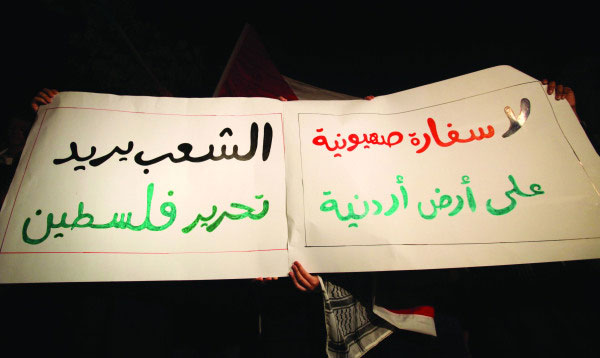 لا سفارة صهيونية
على أرض أردنية
الشعب يريد
تحرير فلسطين